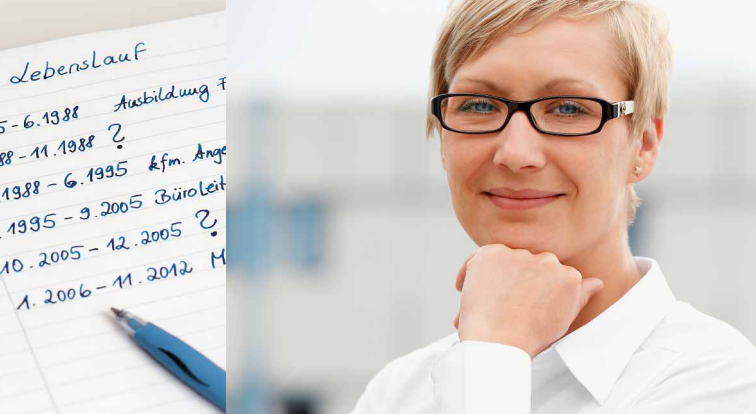 Lebenslauf
5-6.1988 Ausbildung F
88-11.1988 ?
1988 - 6.1995 kfm. Ange
1995 - 9.2005 Büroleit
10.2005 - 12.2005 ?
1. 2006 - 11.2012 M